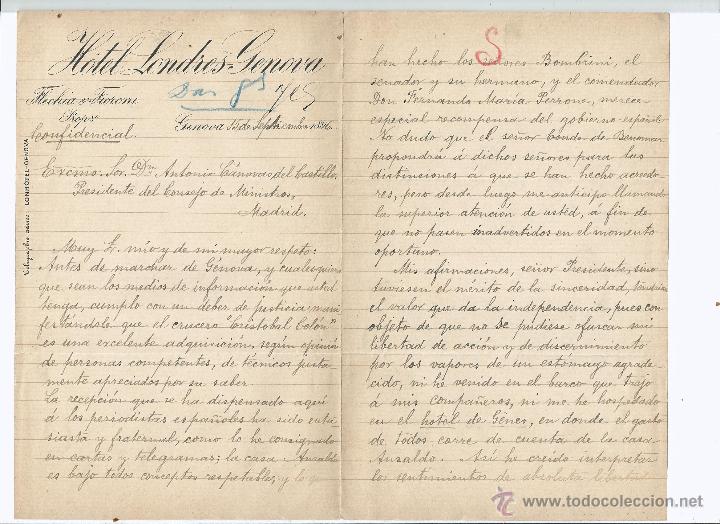 Hotel Londres-Genova
Flechia & Fioroni
Propr
Confidencial.
Génova 15 de Septiembre
Telegraphic address: LONHÔTEL-GENOVA
Excmo. Sor. Dn. Antonio Cánovas del Castillo,
Presidente del Consejo de Ministros,
Madrid.
Muy Sr. mío y de mi mayor respeto:
Antes de marchar de Génova, y cualesquiera
que sean los medios de información que usted
tenga, cumplo con un deber de justicia mani
festándole que el crucero "Cristobal Colón"
es una excelente adquisición, según opinión
de personas competentes, de técnicos justa
mente apreciados por su saber.
La recepción que se ha dispensado aquí
á los periodistas españoles ha sido entu
siasta y fraternal, como lo he consignado
en cartas y telegramas; la casa Ansaldo
es bajo todos conceptos respetable, y lo que
S
han hecho los señores Bombrini, el
senador y su hermano, y el comendador
Don Fernando María Perrone, merece
especial recompensa del gobierno español.
No dudo que el señor Conde de Benomar
propondrá á dichos señores para las
distinciones á que se han hecho acreedo-
res, pero desde luego me anticipo llamando
la superior atención de usted, á fin de
que no pasen inadvertidos en el momento
oportuno.
Mis afirmaciones, señor Presidente, sino
tuviesen el mérito de la sinceridad, tendrían
el valor que da la independencia, pues con
objeto de que no se pudiese ofuscar mi
libertad de acción y de discernimiento
por los vapores de un estómago agrade-
cido, ni he venido en el barco que trajo
á mis compañeros, ni me he hospedado
en el hotel de Génes, en donde el gasto
de todos corre de cuenta de la casa
Ansaldo. Así he creído interpretar
los sentimientos de absoluta libertad
todocoleccion
www.todocoleccion.net